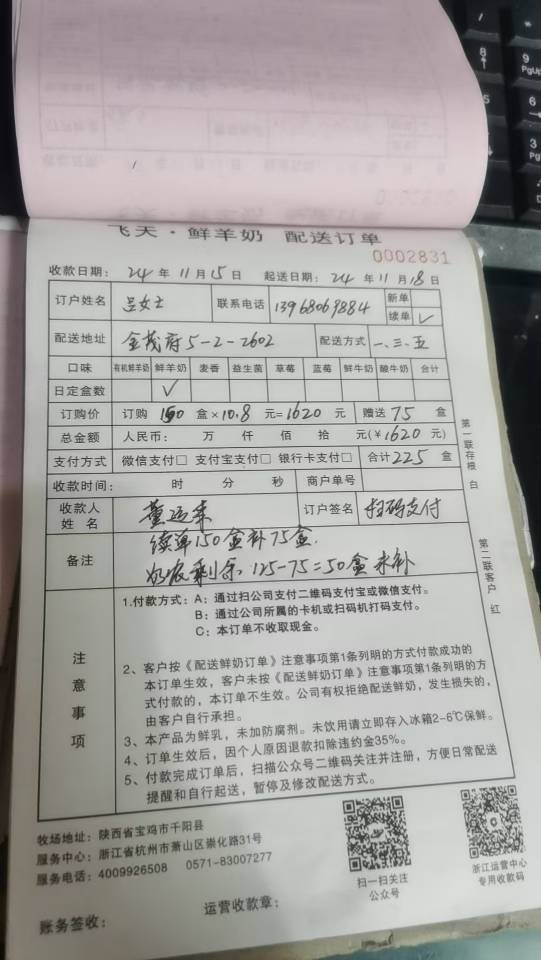 飞天·鲜羊奶 配送订单
0002831
收款日期：24年11月15日 起送日期：24年11月18日
订户姓名 吕女士 联系电话 13968069884 新单
续单 ✓
配送地址 金茂府5-2-2602 配送方式 一、三、五
口味 有机鲜羊奶 鲜羊奶 麦香 益生菌 草莓 蓝莓 鲜牛奶 酸牛奶 合计
日定盒数 ✓
订购价 订购 150 盒×10.8元=1620元 赠送 75 盒
总金额 人民币： 万 仟 佰 拾 元(￥1620元)
支付方式 微信支付□ 支付宝支付□ 银行卡支付□ 合计225盒
收款时间： 时 分 秒 商户单号
收款人姓名 董运来 订户签名 扫码支付
备注 续单150盒补75盒.
剩余，125-75=50盒未补
注意事项
1.付款方式：A：通过扫公司支付二维码支付宝或微信支付。
B：通过公司所属的卡机或扫码机打码支付。
C：本订单不收取现金。
2、客户按《配送鲜奶订单》注意事项第1条列明的方式付款成功的
本订单生效，客户未按《配送鲜奶订单》注意事项第1条列明的方
式付款的，本订单不生效。公司有权拒绝配送鲜奶，发生损失的，
由客户自行承担。
3、本产品为鲜乳，未加防腐剂。未饮用请立即存入冰箱2-6℃保鲜。
4、订单生效后，因个人原因退款扣除违约金35%。
5、付款完成订单后，扫描公众号二维码关注并注册，方便日常配送
提醒和自行起送，暂停及修改配送方式。
第一联存根 白
第二联客户 红
牧场地址：陕西省宝鸡市千阳县
服务中心：浙江省杭州市萧山区崇化路31号
服务电话：4009926508 0571-83007277
扫一扫关注
公众号
浙江运营中心
专用收款码
账务签收： 运营收款章：
7
8
9
PgUp
5
6
3
PgDn